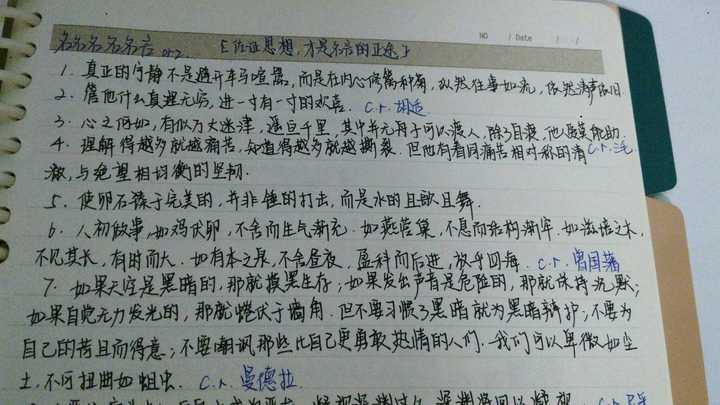 NO / Date / /
名名名名名言 or2. 「佐证思想,才是名言的正途」
1. 真正的宁静不是避开车马喧嚣,而是在内心修篱种菊,纵然往事如流,依然涛声依旧.
2. 管他什么真理无穷,进一寸有一寸的欢喜. c.r. 胡适
3. 心之何如,有似万丈迷津,遥亘千里,其中并无舟子可以渡人,除了自渡,他人爱莫能助. c.r. 三毛
4. 理解得越多就越痛苦.知道得越多就越撕裂.但他有着同痛苦相对称的清
澈,与绝望相均衡的坚韧.
5. 使卵石臻于完美的,并非锤的打击,而是水的且歌且舞.
6. 人初做事,如鸡伏卵,不舍而生气渐充.如燕营巢,不息而结构渐牢.如滋培之木,
不见其长,有时而大.如有本之泉,不舍昼夜,盈科而后进,放乎四海. c.r. 曾国藩
7. 如果天空是黑暗的,那就摸黑生存;如果发出声音是危险的,那就保持沉默;
如果自觉无力发光的,那就蜷伏于墙角.但不要习惯了黑暗就为黑暗辩护;不要为
自己的苟且而得意;不要嘲讽那些比自己更勇敢热情的人们.我们可以卑微如尘
土,不可扭曲如蛆虫. c.r. 曼德拉